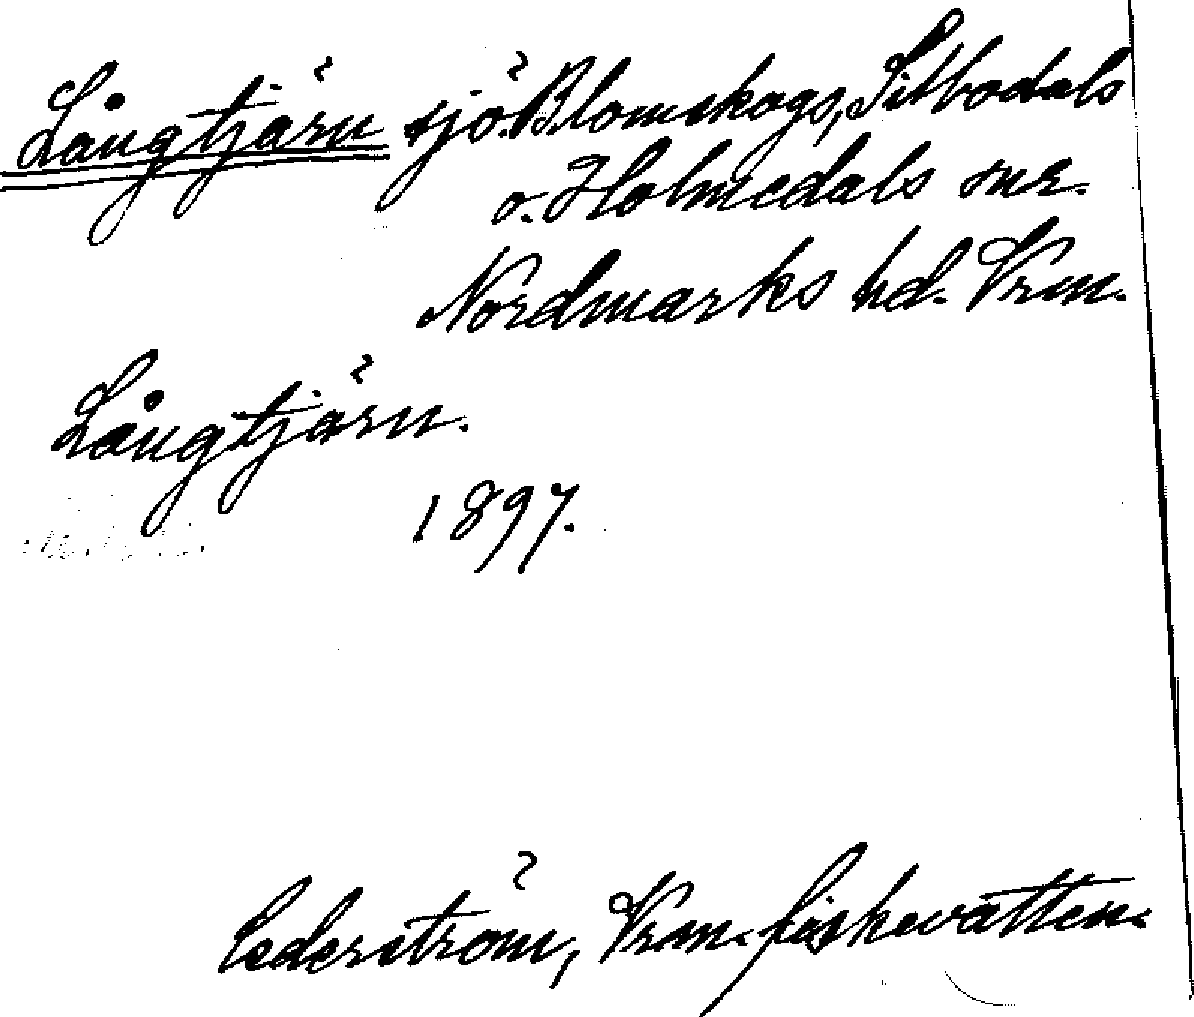 Långtjärn sjö. Blomskogs, Silbodals
o. Holmedals snr.
Nordmarks hd. Vrm.
Långtjärn.
1897.
Cederström, Vrm. fiskevatten.